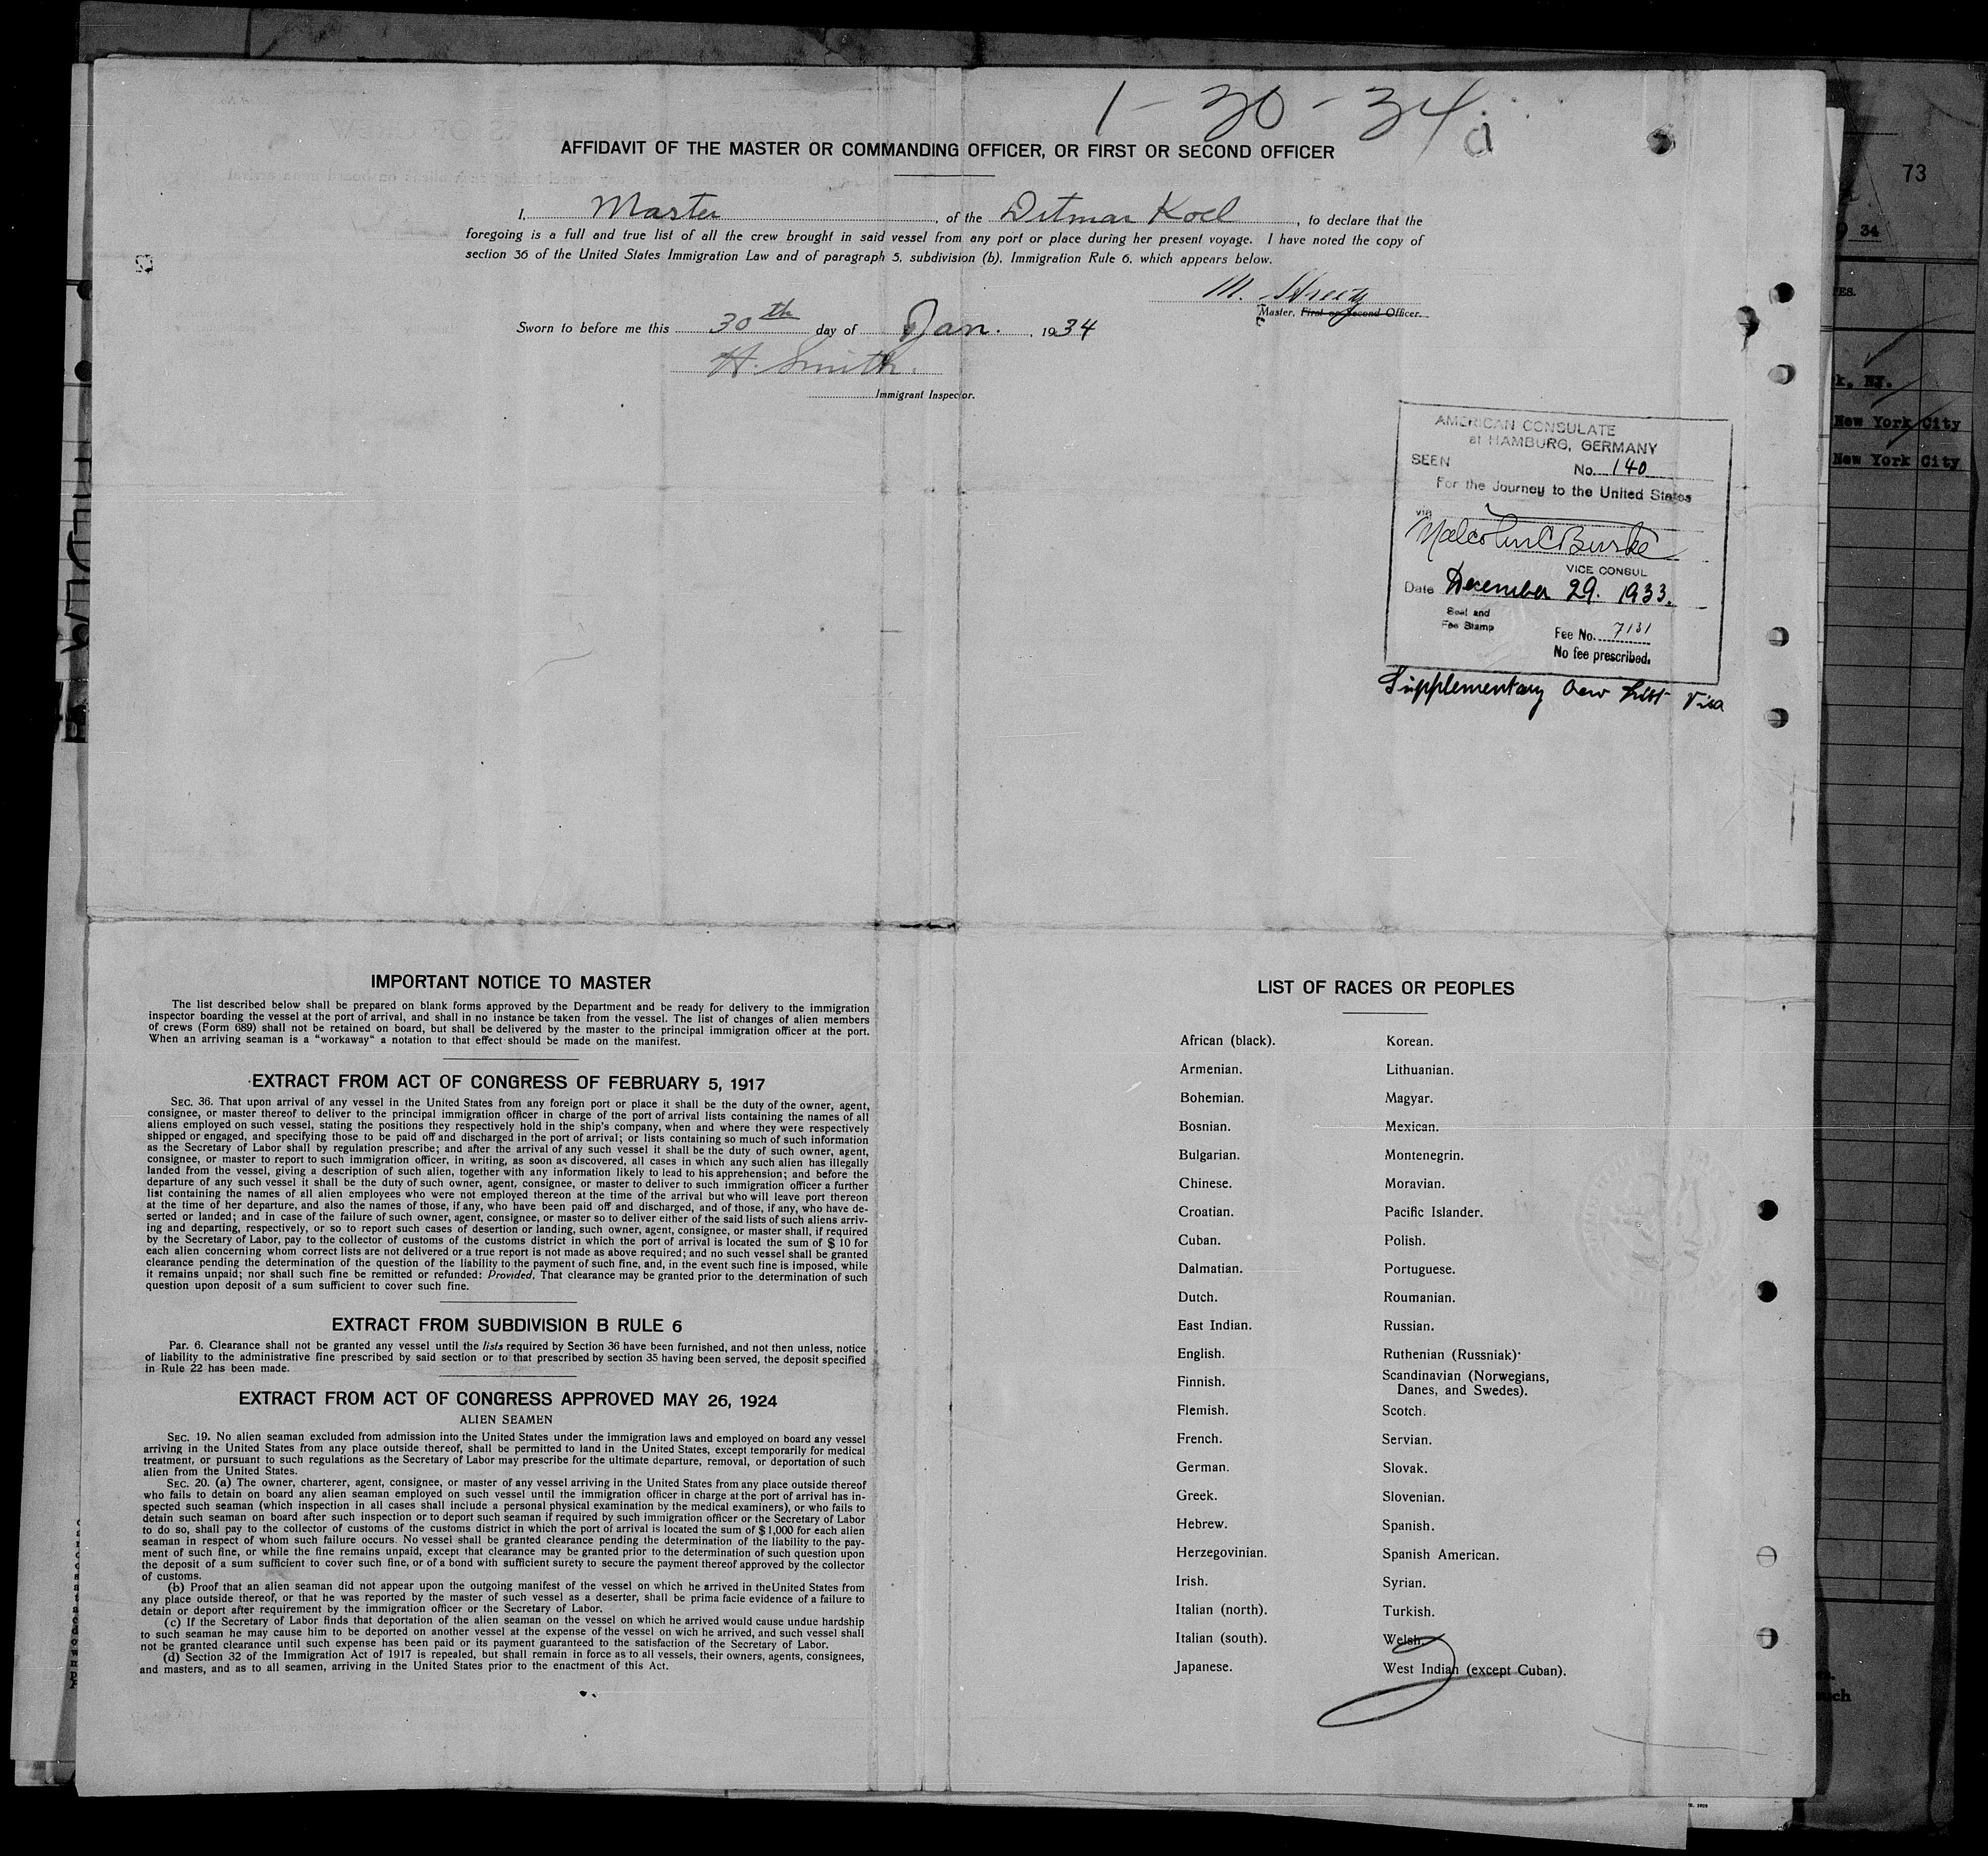 1-30-34
a
AFFIDAVIT OF THE MASTER OR COMMANDING OFFICER, OR FIRST OR SECOND OFFICER
I, Master, of the Ditmar Koel, to declare that the
foregoing is a full and true list of all the crew brought in said vessel from any port or place during her present voyage. I have noted the copy of
section 36 of the United States Immigration Law and of paragraph 5, subdivision (b), Immigration Rule 6, which appears below.
M.
Master, First or Second Officer.
Sworn to before me this 30th day of Jan., 1934
H. Smith.
Immigrant Inspector.
AMERICAN CONSULATE
at HAMBURG, GERMANY
SEEN No. 140
For the Journey to the United States
via
Malcolm C Burke
VICE CONSUL
Date December 29. 1933.
Seal and
Fee Stamp
Fee No. 7131
No fee prescribed.
Supplementary Crew List Visa
IMPORTANT NOTICE TO MASTER
The list described below shall be prepared on blank forms approved by the Department and be ready for delivery to the immigration
inspector boarding the vessel at the port of arrival, and shall in no instance be taken from the vessel. The list of changes of alien members
of crews (Form 689) shall not be retained on board, but shall be delivered by the master to the principal immigration officer at the port.
When an arriving seaman is a "workaway" a notation to that effect should be made on the manifest.
EXTRACT FROM ACT OF CONGRESS OF FEBRUARY 5, 1917
SEC. 36. That upon arrival of any vessel in the United States from any foreign port or place it shall be the duty of the owner, agent,
consignee, or master thereof to deliver to the principal immigration officer in charge of the port of arrival lists containing the names of all
aliens employed on such vessel, stating the positions they respectively hold in the ship's company, when and where they were respectively
shipped or engaged, and specifying those to be paid off and discharged in the port of arrival; or lists containing so much of such information
as the Secretary of Labor shall by regulation prescribe; and after the arrival of any such vessel it shall be the duty of such owner, agent,
consignee, or master to report to such immigration officer, in writing, as soon as discovered, all cases in which any such alien has illegally
landed from the vessel, giving a description of such alien, together with any information likely to lead to his apprehension; and before the
departure of any such vessel it shall be the duty of such owner, agent, consignee, or master to deliver to such immigration officer a further
list containing the names of all alien employees who were not employed thereon at the time of the arrival but who will leave port thereon
at the time of her departure, and also the names of those, if any, who have been paid off and discharged, and of those, if any, who have de-
serted or landed; and in case of the failure of such owner, agent, consignee, or master so to deliver either of the said lists of such aliens arriv-
ing and departing, respectively, or so to report such cases of desertion or landing, such owner, agent, consignee, or master shall, if required
by the Secretary of Labor, pay to the collector of customs of the customs district in which the port of arrival is located the sum of $ 10 for
each alien concerning whom correct lists are not delivered or a true report is not made as above required; and no such vessel shall be granted
clearance pending the determination of the question of the liability to the payment of such fine, and, in the event such fine is imposed, while
it remains unpaid; nor shall such fine be remitted or refunded: Provided, That clearance may be granted prior to the determination of such
question upon deposit of a sum sufficient to cover such fine.
EXTRACT FROM SUBDIVISION B RULE 6
Par. 6. Clearance shall not be granted any vessel until the lists required by Section 36 have been furnished, and not then unless, notice
of liability to the administrative fine prescribed by said section or to that prescribed by section 35 having been served, the deposit specified
in Rule 22 has been made.
EXTRACT FROM ACT OF CONGRESS APPROVED MAY 26, 1924
ALIEN SEAMEN
SEC. 19. No alien seaman excluded from admission into the United States under the immigration laws and employed on board any vessel
arriving in the United States from any place outside thereof, shall be permitted to land in the United States, except temporarily for medical
treatment, or pursuant to such regulations as the Secretary of Labor may prescribe for the ultimate departure, removal, or deportation of such
alien from the United States.
SEC. 20. (a) The owner, charterer, agent, consignee, or master of any vessel arriving in the United States from any place outside thereof
who fails to detain on board any alien seaman employed on such vessel until the immigration officer in charge at the port of arrival has in-
spected such seaman (which inspection in all cases shall include a personal physical examination by the medical examiners), or who fails to
detain such seaman on board after such inspection or to deport such seaman if required by such immigration officer or the Secretary of Labor
to do so, shall pay to the collector of customs of the customs district in which the port of arrival is located the sum of $1,000 for each alien
seaman in respect of whom such failure occurs. No vessel shall be granted clearance pending the determination of the liability to the pay-
ment of such fine, or while the fine remains unpaid, except that clearance may be granted prior to the determination of such question upon
the deposit of a sum sufficient to cover such fine, or of a bond with sufficient surety to secure the payment thereof approved by the collector
of customs.
(b) Proof that an alien seaman did not appear upon the outgoing manifest of the vessel on which he arrived in theUnited States from
any place outside thereof, or that he was reported by the master of such vessel as a deserter, shall be prima facie evidence of a failure to
detain or deport after requirement by the immigration officer or the Secretary of Labor.
(c) If the Secretary of Labor finds that deportation of the alien seaman on the vessel on which he arrived would cause undue hardship
to such seaman he may cause him to be deported on another vessel at the expense of the vessel on wich he arrived, and such vessel shall
not be granted clearance until such expense has been paid or its payment guaranteed to the satisfaction of the Secretary of Labor.
(d) Section 32 of the Immigration Act of 1917 is repealed, but shall remain in force as to all vessels, their owners, agents, consignees,
and masters, and as to all seamen, arriving in the United States prior to the enactment of this Act.
LIST OF RACES OR PEOPLES
African (black).
Armenian.
Bohemian.
Bosnian.
Bulgarian.
Chinese.
Croatian.
Cuban.
Dalmatian.
Dutch.
East Indian.
English.
Finnish.
Flemish.
French.
German.
Greek.
Hebrew.
Herzegovinian.
Irish.
Italian (north).
Italian (south).
Japanese.
Korean.
Lithuanian.
Magyar.
Mexican.
Montenegrin.
Moravian.
Pacific Islander.
Polish.
Portuguese.
Roumanian.
Russian.
Ruthenian (Russniak).
Scandinavian (Norwegians,
Danes, and Swedes).
Scotch.
Servian.
Slovak.
Slovenian.
Spanish.
Spanish American.
Syrian.
Turkish.
Welsh.
West Indian (except Cuban).
73
34
New York City
New York City